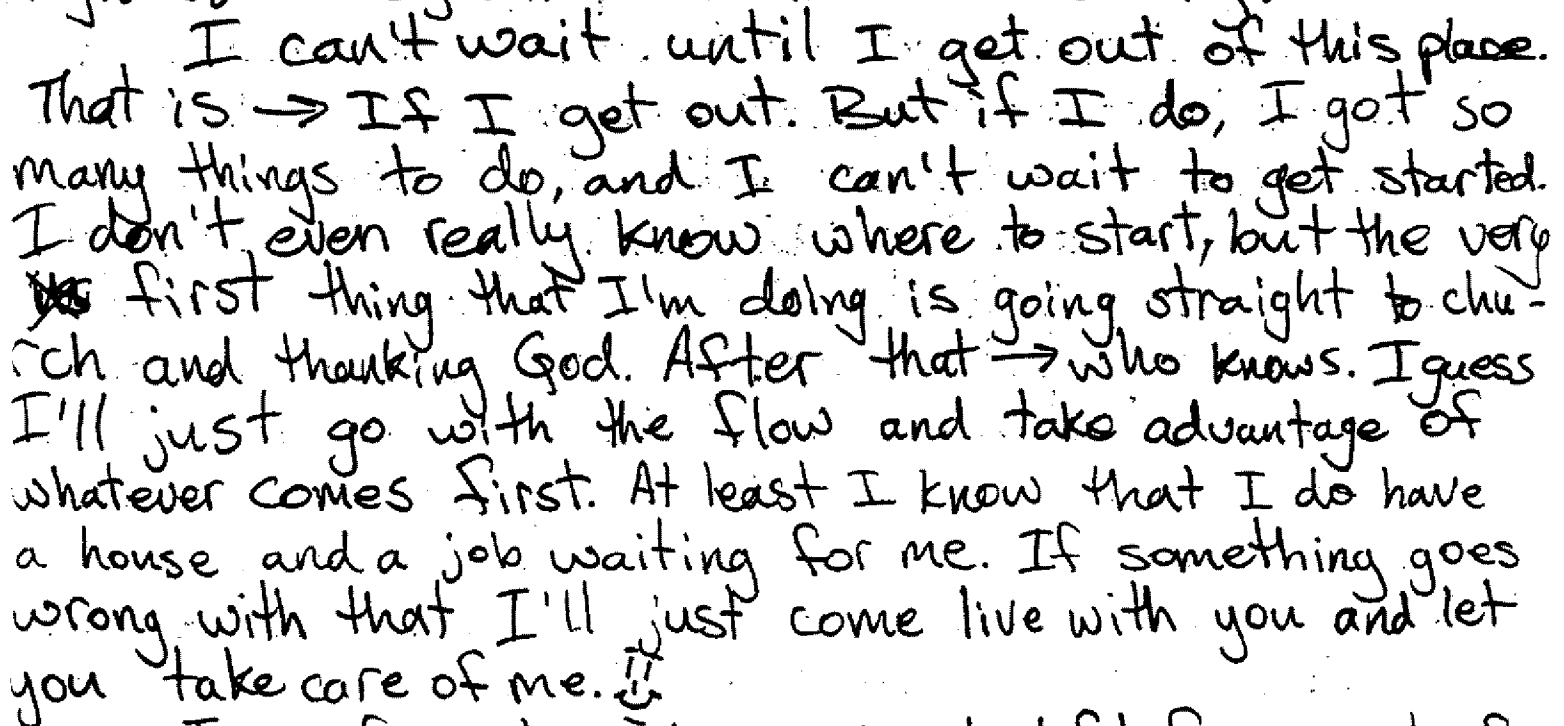 I can't wait until I get out of this place.
That is → If I get out. But if I do, I got so
many things to do, and I can't wait to get started.
I don't even really know where to start, but the very
first thing that I'm doing is going straight to chu-
rch and thanking God. After that → who knows. I guess
I'll just go with the flow and take advantage of
whatever comes first. At least I know that I do have
a house and a job waiting for me. If something goes
wrong with that I'll just come live with you and let
you take care of me.